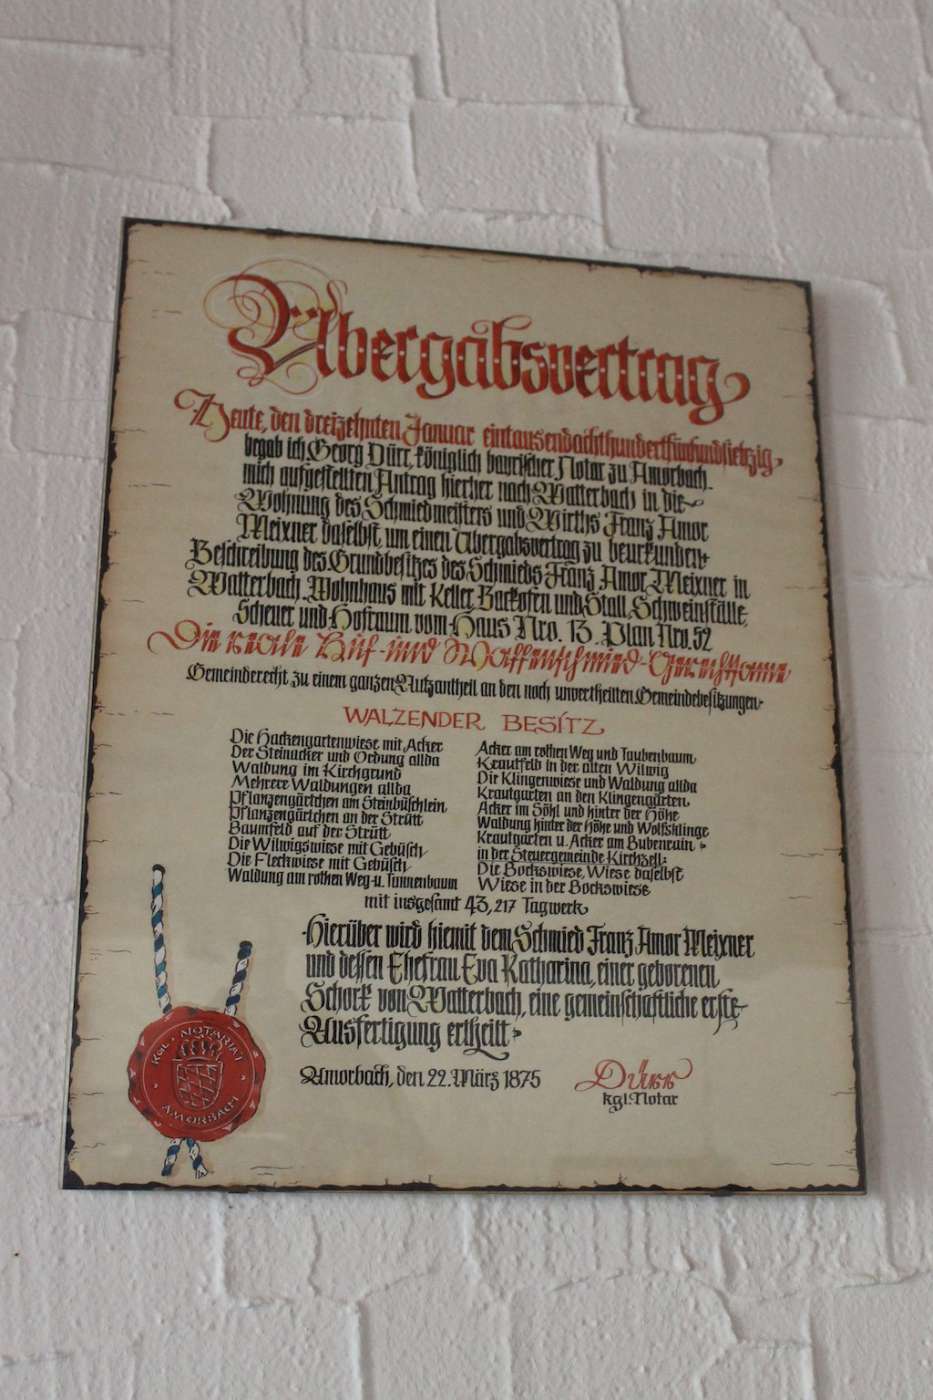 Übergabsvertrag
Heute, den dreizehnten Januar eintausendachthundertfünfundsiebzig,
begab ich Georg Dürr, königlich bayrischer Notar zu Amorbach
mich aufgestellten Antrag hierher nach Watterbach in die
Wohnung des Schmiedmeisters und Wirths Franz Amor
Meixner daselbst, um einen Übergabsvertrag zu beurkunden.
Beschreibung des Grundbesitzes des Schmieds Franz Amor Meixner in
Watterbach. Wohnhaus mit Keller, Backofen und Stall, Schweinställe,
Scheuer und Hofraum vom Haus Nro. 13. Plan Nro. 52
Die reale Huf- und Waffenschmied-Gerechtsame
Gemeinderecht zu einem ganzen Nutzantheil an den noch unvertheilten Gemeindebesitzungen.
WALZENDER BESITZ
Die Hackengartenwiese mit Acker
Der Steinacker und Oedung allda
Waldung im Kirchgrund
Mehrere Waldungen allda
Pflanzengärtchen am Steinbüschlein
Pflanzengärtchen an der Strütt
Baumfeld auf der Strütt
Die Wilwigswiese mit Gebüsch
Die Fleckwiese mit Gebüsch
Waldung am rothen Weg u. Tannenbaum
Acker am rothen Weg und Taubenbaum
Krautfeld in der alten Wilwig
Die Klingenwiese und Waldung allda
Krautgarten an den Klingengärten
Acker im Söhl und hinter der Höhe
Waldung hinter der Höhe und Wolfsklinge
Krautgarten u. Acker am Bubenrain
in der Steuergemeinde Kirchzell:
Die Bockswiese, Wiese daselbst
Wiese in der Bockswiese
mit insgesamt 43,217 Tagwerk
Hierüber wird hiemit dem Schmied Franz Amor Meixner
und dessen Ehefrau Eva Katharina, einer geborenen
Schork von Watterbach, eine gemeinschaftliche erste
Ausfertigung ertheilt
Amorbach, den 22. März 1875
Dürr
kgl. Notar
KGL. NOTARIAT
AMORBACH